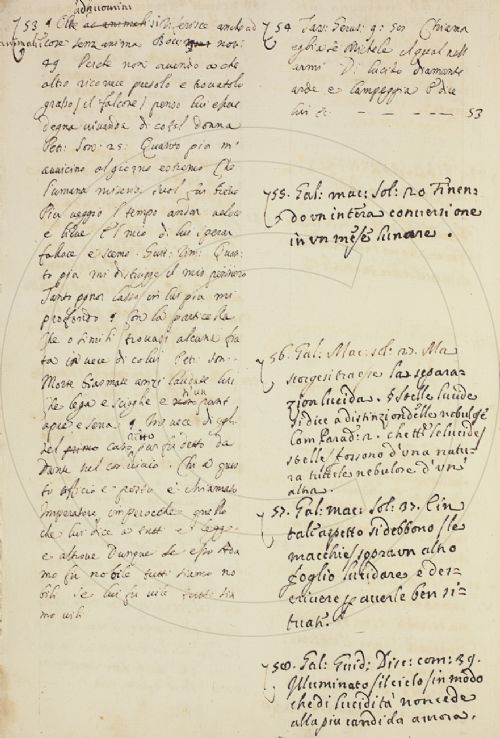 ad huomini
753 ¶ Elle ad animali si riferisce anche ad
animali cose senz anima Bocc: nou:
49 Perche non auendo a che
altro ricorrere presolo e trouatolo
grasso / il falcone / penso lui esser
degna uiuanda di cotal donna
Pet: son: 25: Quanto piu m'
auuicino al giorno estremo Che
l'umana miseria suol far breue
Piu ueggio l tempo andar ueloce
e lieue E l mio di lui sperar
fallace e scemo
to piu mi distrugge il mio pensiero
Tanto poscia lui piu mi
profondo ¶ con la particella
che o simili trouasi alcuna fia
ta in uece di colui Pet: son:
Morte biasmate anzi laudate lui
Che lega e scioglie e n'un punt
apre e serra ¶ in uece di egli
nel primo caso fu detto da
Dante nel conuiuio: Chi a ques
to officio e posto e chiamato
Imperatore imperocche quello
che lui dice a tutti e legge
e altroue Dunque se esso Ada
mo fu nobile tutti siamo no
bili se lui fu uile tutti sia
mo uili
754 Tass: Gerus: 9: 58 Chiama
egli a se Michele il qual nell
armi Di lucido diamante
arde e lampeggia E dice
lui &c. — — — — 53
755. Gal: mac: sol: 20 Finen
do vn intera conuersione
in vn mese lunare.
56. Gal: Mac: sol: 27. Ma
scorgesi tra esse la separa=
zion lucida. ¶ Stelle lucide
si dice a distinzion delle nebulose
Com: Parad: 2. che tt.e le lucide
stelle fossono d'una natu=
ra tutte le nebulose d'un'
altra.
57. Gal: mac: sol: 37. E in
tal'aspetto si debbono / le
macchie / sopra vn altro
foglio lucidare e des=
criuere p auerle ben si=
tuate.
758. Gal: Guid: Disc: com: 39.
Illuminato / il cielo / in modo
che di lucidità non cede
alla piu candida aurora.